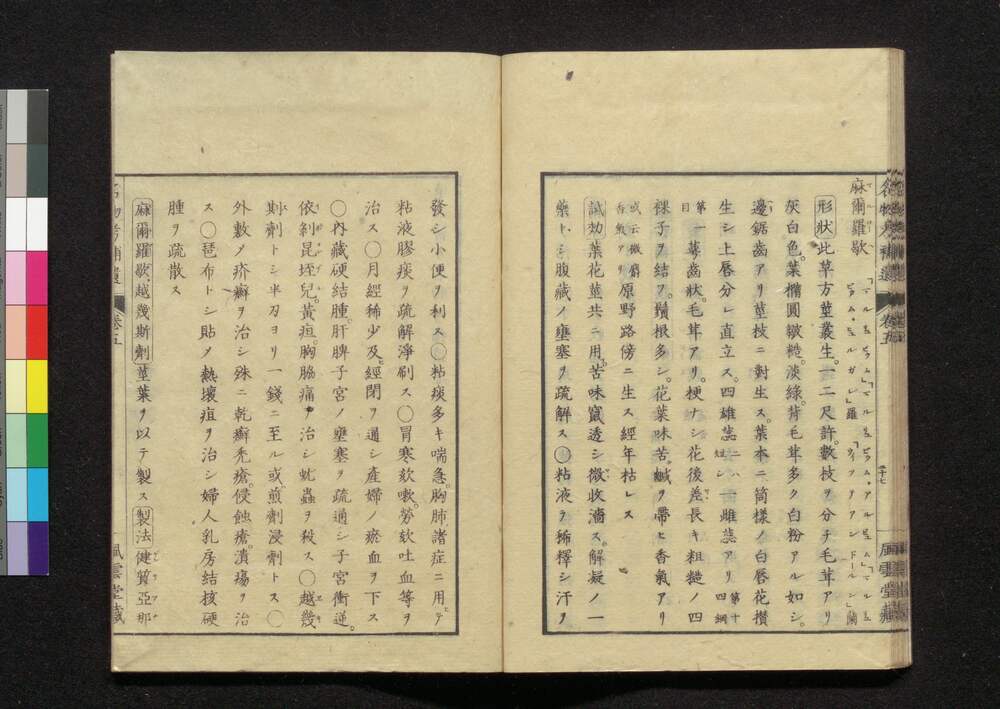 麻爾羅歇
形狀此草方莖叢生。一二尺許。數枝ヲ分チ毛茸アリ
灰白色。葉橢圓皺糙。淡綠。背毛茸多ク白粉アル如シ。
邊鋸齒アリ莖枝ニ對生ス。葉本ニ筒樣ノ白唇花攅
生シ上唇分レ直立ス。四雄蕊二ハ短シ一雌蕊アリ第十四綱
第一目萼齒狀。毛茸アリ。梗ナシ花後差長キ粗糙ノ四
裸子ヲ結フ。鬚根多シ。花葉味苦鹹ヲ帶ヒ香氣アリ
或云微麝香氣アリ原野路傍ニ生ス經年枯レス
試効葉花莖共ニ用。苦味竄透シ微收濇ス。解凝ノ一
藥トシ腹藏ノ壅塞ヲ疏解ス○粘液ヲ稀釋シ汗ヲ
卷五
二十七
風雲堂藏
發シ小便ヲ利ス○粘痰多キ喘急。胸肺諸症ニ用テ
粘液膠痰ヲ疏解淨刷ス○冒寒欬嗽。勞欬吐血等ヲ
治ス○月經稀少及ヒ經閉ヲ通シ產婦ノ瘀血ヲ下ス
○內藏硬結腫。肝脾子宮ノ壅塞ヲ疏通シ子宮衝逆。
依剝昆垤兒。黃疸。胸脇痛ヲ治シ蚘蟲ヲ殺ス○越幾
斯劑トシ半刄ヨリ一錢ニ至ル或煎劑浸劑トス○
外敷メ疥癬ヲ治シ殊ニ乾癬禿瘡。侵蝕瘡。潰瘍ヲ治
ス○琶布トシ貼メ熱壞疽ヲ治シ婦人乳房結核硬
腫ヲ疏散ス
麻爾羅歇越幾斯劑莖葉ヲ以テ製ス製法健質亞那
卷五
風雲堂藏